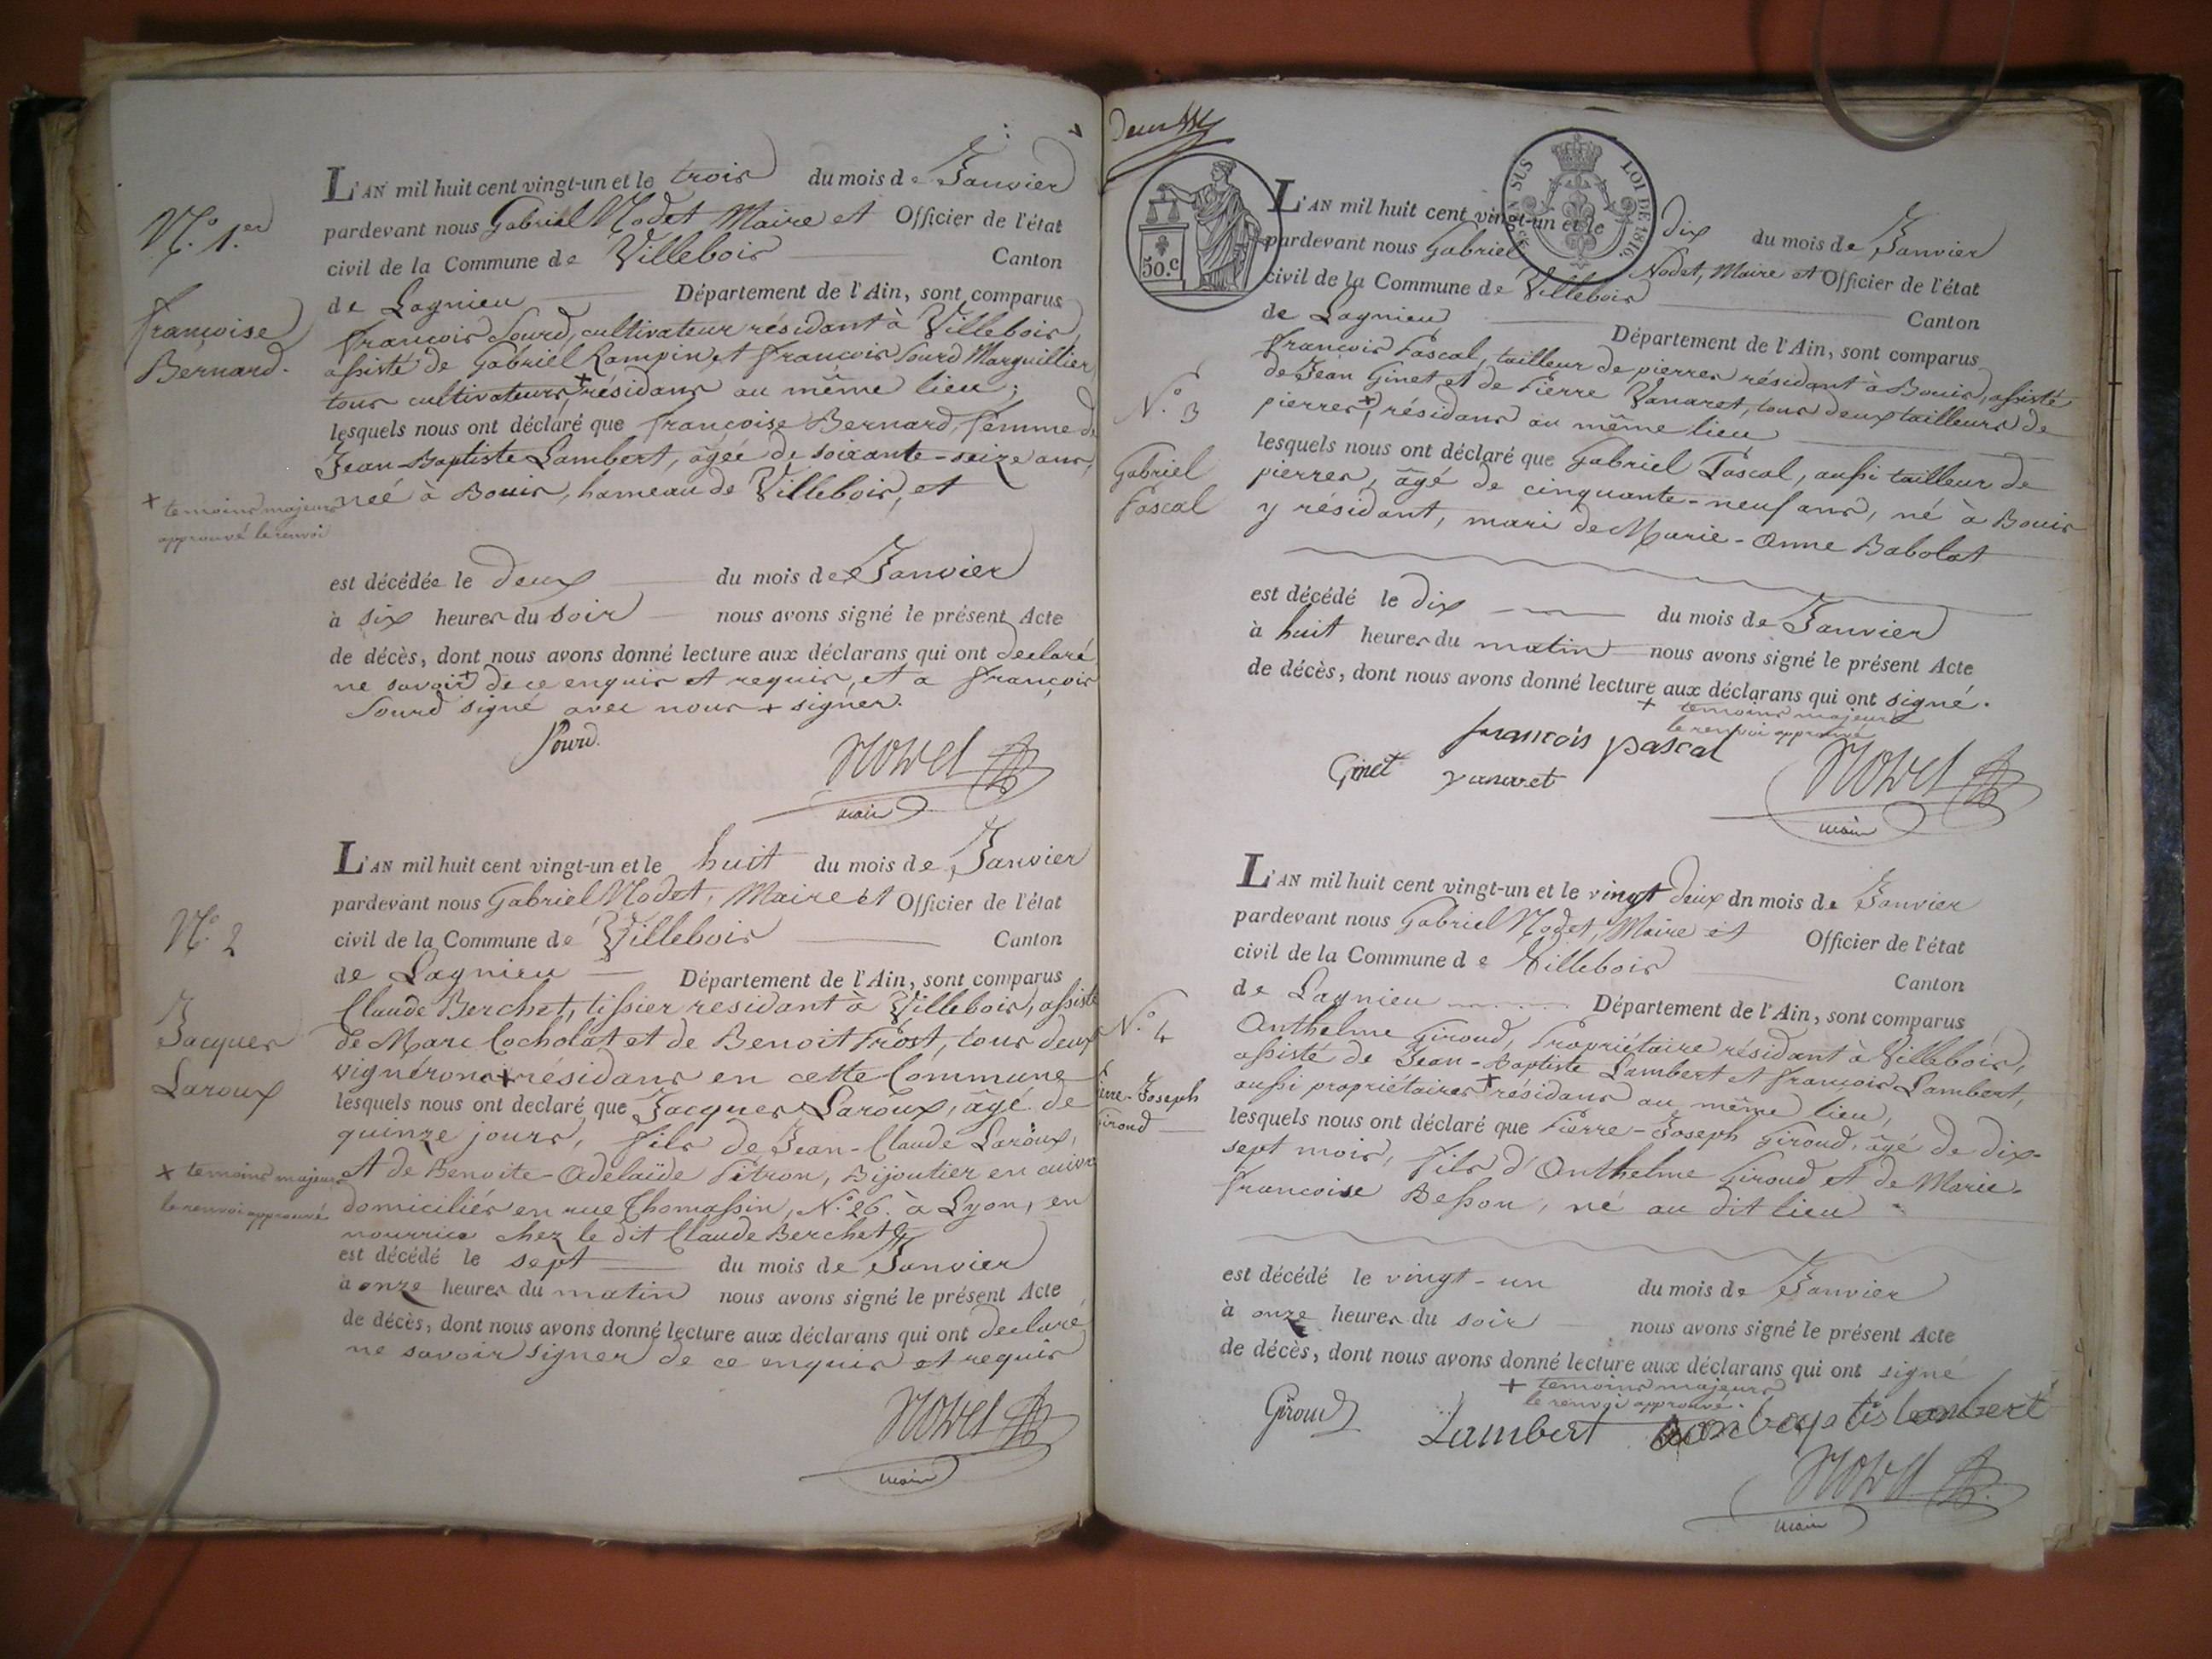 L'AN mil huit cent vingt-un et le trois du mois de Janvier
pardevant nous Gabriel Nodet Maire et Officier de l'état
civil de la Commune de Villebois Canton
de Lagnieu Département de l'Ain, sont comparus
françois Sourd, cultivateur résidant à Villebois,
assisté de Gabriel Rampin et françois Sourd Marguillier
tous cultivateurs + résidans au même lieu;
lesquels nous ont déclaré que françoise Bernard, femme de
Jean-Baptiste Lambert, âgée de soixante-seize ans,
neé à Bouis, hameau de Villebois, et
est décédée le deux du mois de Janvier
à six heures du soir nous avons signé le présent Acte
de décès, dont nous avons donné lecture aux déclarans qui ont declaré
ne savoir + de ce enquis et requis, et a françois
Sourd signé avec nous + signer.
Sourd.
Nodet
maire
N.º 1.er
françoise
Bernard.
+ temoins majeurs
approuvé le renvoi
L'AN mil huit cent vingt-un et le huit du mois de Janvier
pardevant nous Gabriel Nodet, Maire et Officier de l'état
civil de la Commune de Villebois Canton
de Lagnieu Département de l'Ain, sont comparus
Claude Berchet, tissier residant à Villebois, assisté
de Marc Cocholat et de Benoit Trost, tous deux
vignérons + résidans en cette Commune
lesquels nous ont declaré que Jacques Laroux, âgé de
quinze jours, fils de Jean-Claude Laroux,
et de Benoite-Adelaïde Pitron, Bijoutier en cuivre
domiciliés en rue Thomassin, N.º 26. à Lyon, en
nourrice chez le dit Claude Berchet
est décédé le sept du mois de Janvier
à onze heures du matin nous avons signé le présent Acte
de décès, dont nous avons donné lecture aux déclarans qui ont declaré
ne savoir signer de ce enquis et requis
Nodet
maire
N.º 2
Jacques
Laroux
+ temoins majeurs
le renvoi approuvé
Deux
50.c
SUS
LOI DE 1816.
L'AN mil huit cent vingt-un et le dix du mois de Janvier
pardevant nous Gabriel Nodet, Maire et Officier de l'état
civil de la Commune de Villebois Canton
de Lagnieu Département de l'Ain, sont comparus
françois Pascal, tailleur de pierres résidant à Bouis, assisté
de Jean Ginet et de Pierre Vanaret, tous deux tailleurs de
pierres +, résidans au même lieu
lesquels nous ont déclaré que Gabriel Pascal, aussi tailleur de
pierres, âgé de cinquante-neuf ans, né à Bouis
y résidant, mari de Marie-Anne Babolat
est décédé le dix du mois de Janvier
à huit heures du matin nous avons signé le présent Acte
de décès, dont nous avons donné lecture aux déclarans qui ont signé.
+ temoins majeurs
le renvoi approuvé
françois pascal
Ginet vanaret
Nodet
maire
N.º 3
Gabriel
Pascal
L'AN mil huit cent vingt-un et le vingt deux dn mois de Janvier
pardevant nous Gabriel Nodet, Maire et Officier de l'état
civil de la Commune de Villebois Canton
de Lagnieu Département de l'Ain, sont comparus
Anthelme Giroud, Propriétaire résidant à Villebois,
assisté de Jean-Baptiste Lambert et françois Lambert,
aussi propriétaires + résidans au même lieu,
lesquels nous ont déclaré que Pierre-Joseph Giroud, âgé de dix-
sept mois, fils d'Anthelme Giroud et de Marie-
françoise Besson, né au dit lieu
est décédé le vingt-un du mois de Janvier
à onze heures du soir nous avons signé le présent Acte
de décès, dont nous avons donné lecture aux déclarans qui ont signé
+ temoins majeurs
le renvoi approuvé.
Giroud Lambert Lambert
Nodet
maire
N.º 4
Pierre-Joseph
Giroud